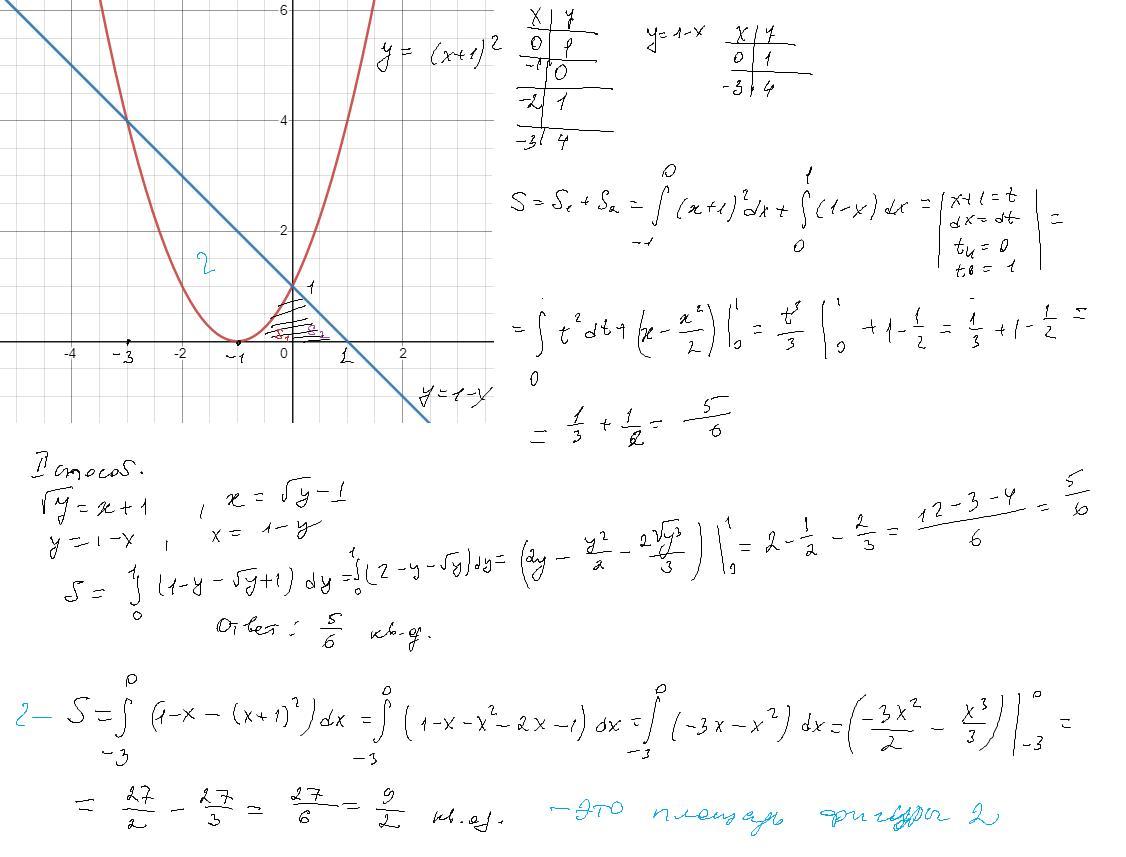 6
4
2
-4 -3 -2 -1 0 1 2
y = (x+1)²
1
2
S₁ S₂
y=1-x
x y
0 1
-1 0
-2 1
-3 4
y=1-x
x y
0 1
-3 4
S = S₁ + S₂ = ∫₋₁⁰ (x+1)² dx + ∫₀¹ (1-x) dx = | x+1=t dx=dt tн=0 tв=1 | =
= ∫₀¹ t² dt + (x - x²/2) |₀¹ = t³/3 |₀¹ + 1 - 1/2 = 1/3 + 1 - 1/2 =
= 1/3 + 1/2 = 5/6
II способ.
√y = x+1 , x = √y - 1
y = 1-x , x = 1-y
S = ∫₀¹ (1-y-√y+1) dy = ∫₀¹ (2-y-√y) dy = (2y - y²/2 - 2√y³/3) |₀¹ = 2 - 1/2 - 2/3 = (12-3-4)/6 = 5/6
Ответ: 5/6 кв.ед.
2- S = ∫₋₃⁰ (1-x-(x+1)²) dx = ∫₋₃⁰ (1-x-x²-2x-1) dx = ∫₋₃⁰ (-3x-x²) dx = (-3x²/2 - x³/3) |₋₃⁰ =
= 27/2 - 27/3 = 27/6 = 9/2 кв.ед. - это площадь фигуры 2